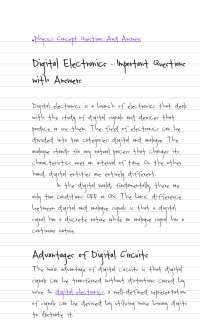 Physics Concept Questions And Answers
Digital Electronics - Important Questions
with Answers
Digital electronics is a branch of electronics that deals
with the study of digital signals and devices that
produce or use them. The field of electronics can be
divided into two categories: digital and analogue. The
analogue stands for any natural process that changes its
characteristics over an interval of time. On the other
hand, digital entities are entirely different.
In the digital world, fundamentally, there are
only two conditions: OFF or ON. The basic difference
between digital and analogue signals is that a digital
signal has a discrete nature while an analogue signal has a
continuous nature.
Advantages of Digital Circuits
The main advantage of digital circuits is that digital
signals can be transferred without distortions caused by
noise. In digital electronics, a well-defined representation
of signals can be derived by utilizing more binary digits
to illustrate it.